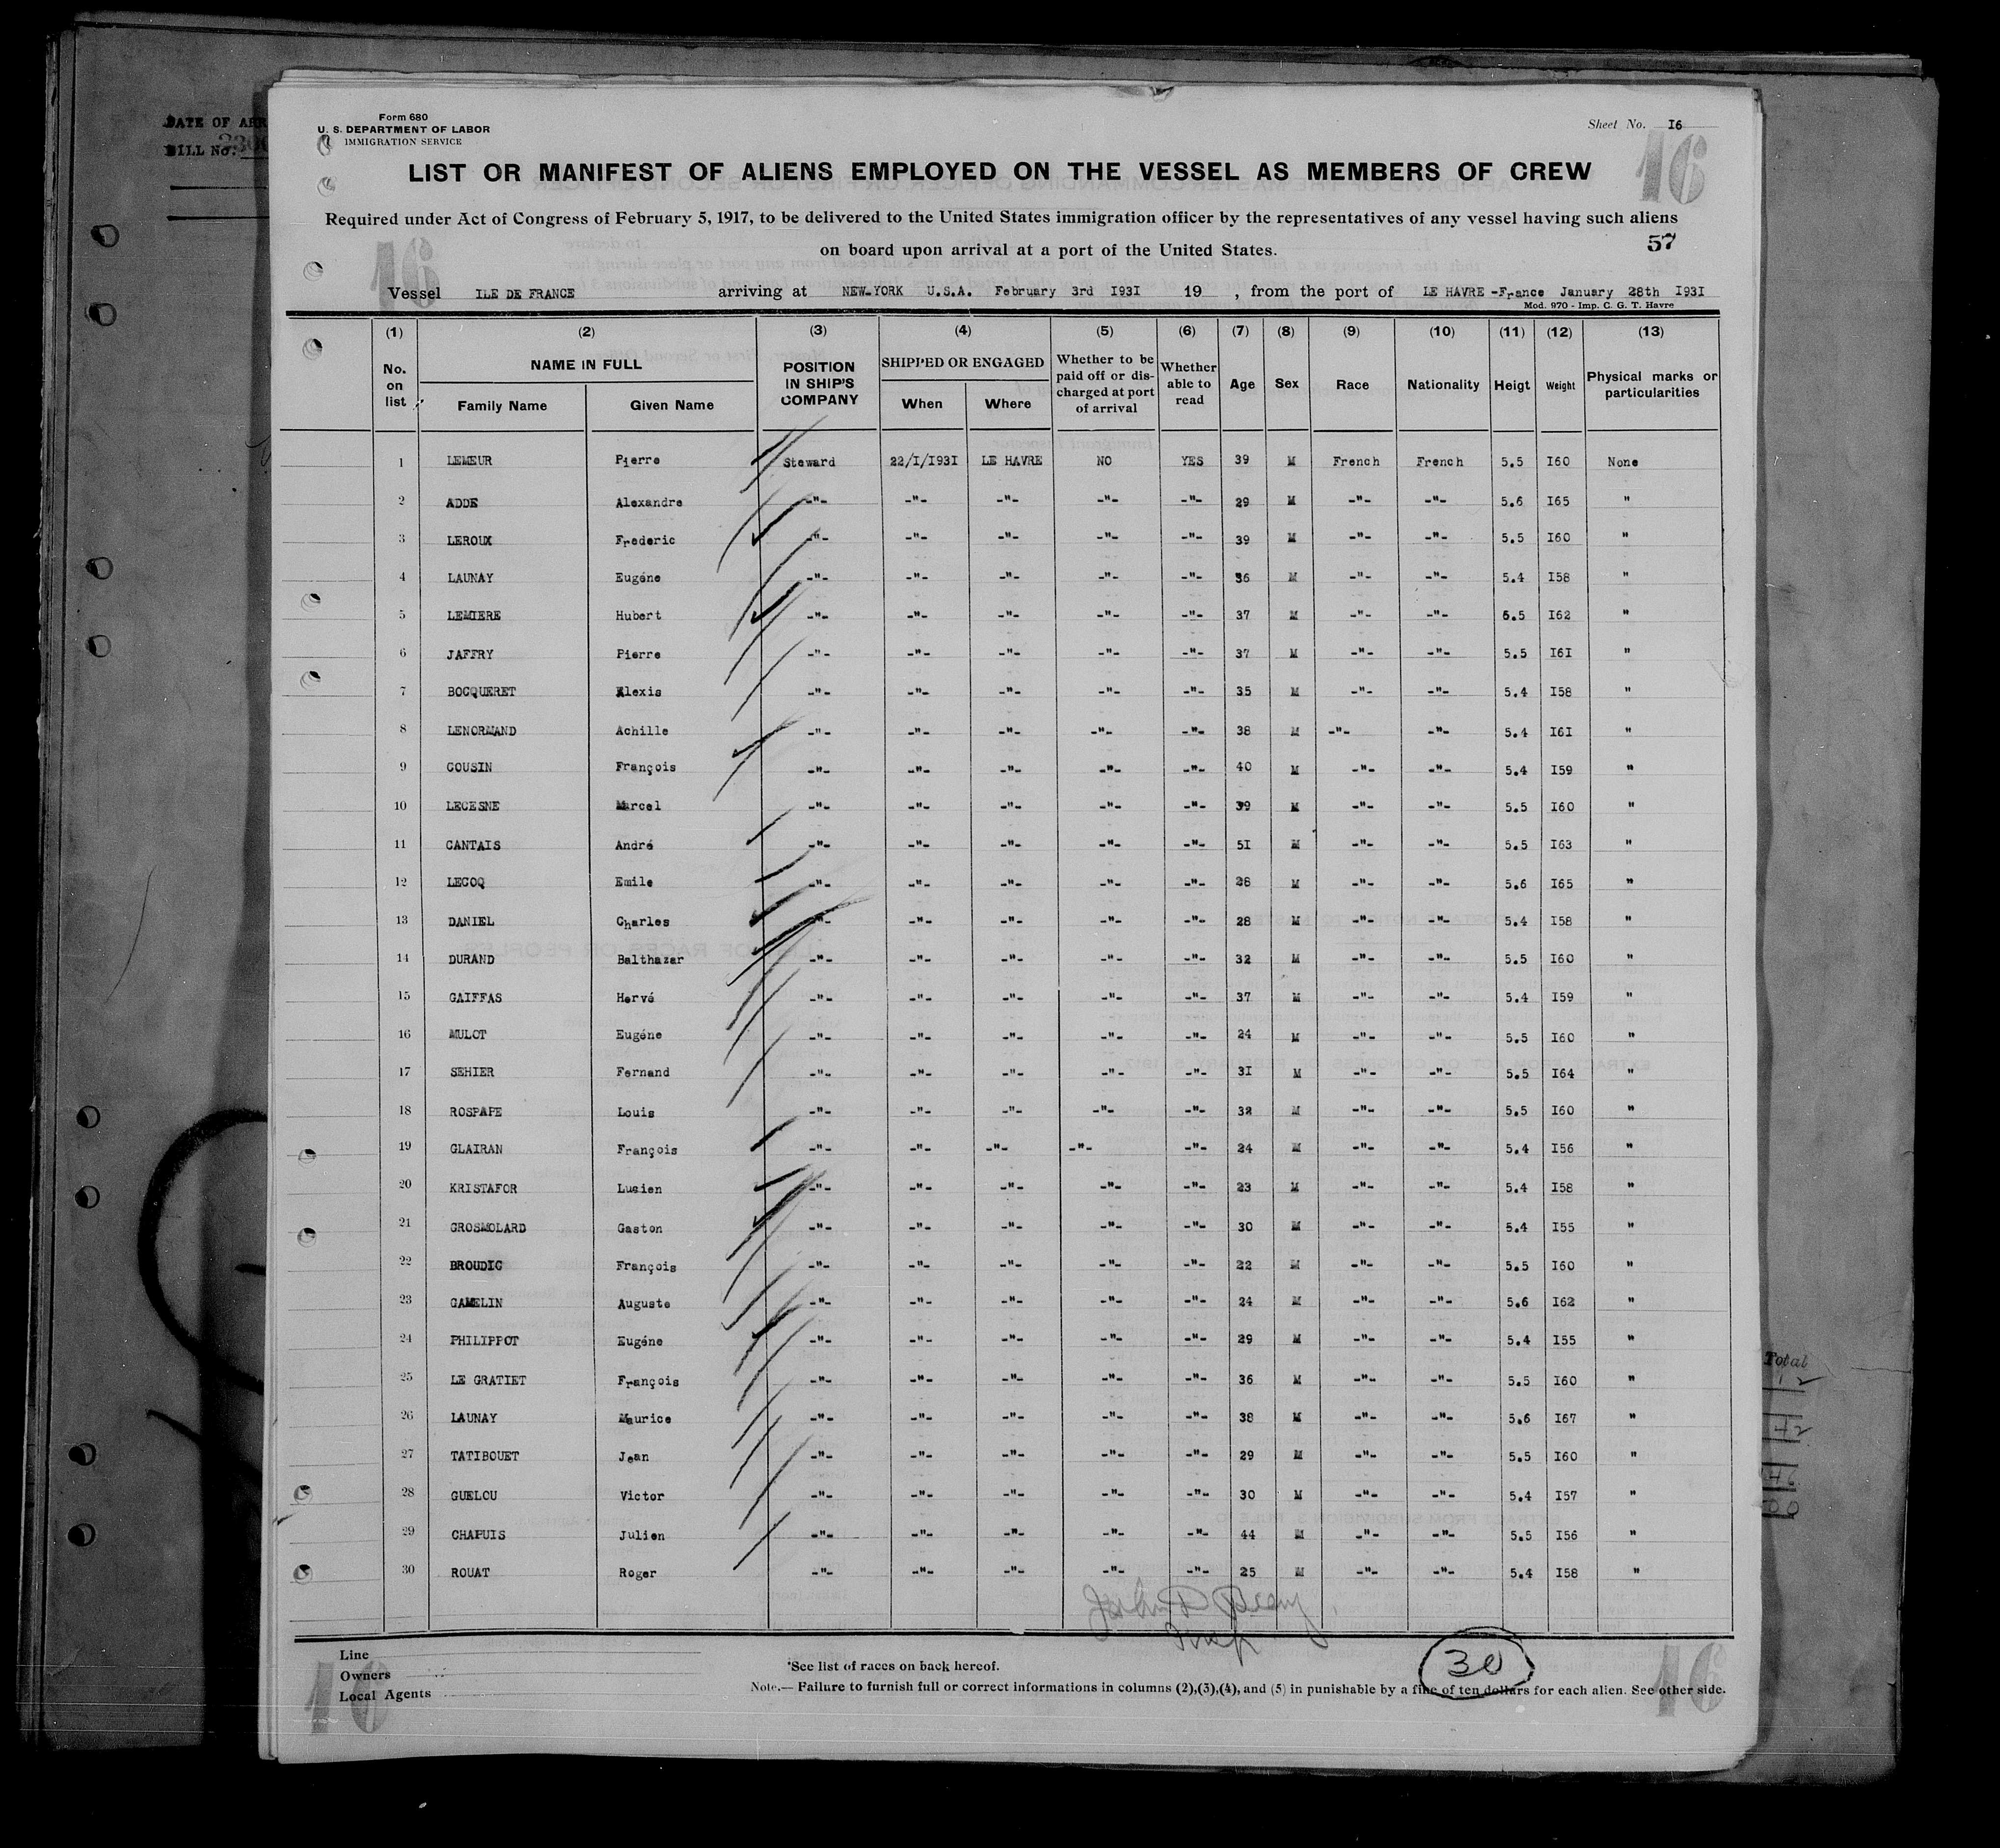 DATE OF ARR
BILL No.
Form 680
U. S. DEPARTMENT OF LABOR
IMMIGRATION SERVICE
Sheet No. I6
16
LIST OR MANIFEST OF ALIENS EMPLOYED ON THE VESSEL AS MEMBERS OF CREW
Required under Act of Congress of February 5, 1917, to be delivered to the United States immigration officer by the representatives of any vessel having such aliens
on board upon arrival at a port of the United States.
57
16
Vessel ILE DE FRANCE arriving at NEW-YORK U.S.A. February 3rd I93I 19 , from the port of LE HAVRE -France January 28th I93I
Mod. 970 - Imp. C. G. T. Havre
(1) (2) (3) (4) (5) (6) (7) (8) (9) (10) (11) (12) (13)
No. on list NAME IN FULL Family Name Given Name POSITION IN SHIP'S COMPANY SHIPPED OR ENGAGED When Where Whether to be paid off or discharged at port of arrival Whether able to read Age Sex Race Nationality Heigt Weight Physical marks or particularities
1 LEMEUR Pierre Steward 22/I/I93I LE HAVRE NO YES 39 M French French 5.5 I60 None
2 ADDE Alexandre -"- -"- -"- -"- -"- 29 M -"- -"- 5.6 I65 "
3 LEROUX Frederic -"- -"- -"- -"- -"- 39 M -"- -"- 5.5 I60 "
4 LAUNAY Eugéne -"- -"- -"- -"- -"- 36 M -"- -"- 5.4 I58 "
5 LEMIERE Hubert -"- -"- -"- -"- -"- 37 M -"- -"- 5.5 I62 "
6 JAFFRY Pierre -"- -"- -"- -"- -"- 37 M -"- -"- 5.5 I6I "
7 BOCQUERET Alexis -"- -"- -"- -"- -"- 35 M -"- -"- 5.4 I58 "
8 LENORMAND Achille -"- -"- -"- -"- -"- 38 M -"- -"- 5.4 I6I "
9 COUSIN François -"- -"- -"- -"- -"- 40 M -"- -"- 5.4 I59 "
10 LECESNE Marcel -"- -"- -"- -"- -"- 39 M -"- -"- 5.5 I60 "
11 CANTAIS André -"- -"- -"- -"- -"- 5I M -"- -"- 5.5 I63 "
12 LECOQ Emile -"- -"- -"- -"- -"- 28 M -"- -"- 5.6 I65 "
13 DANIEL Charles -"- -"- -"- -"- -"- 28 M -"- -"- 5.4 I58 "
14 DURAND Balthazar -"- -"- -"- -"- -"- 32 M -"- -"- 5.5 I60 "
15 GAIFFAS Hervé -"- -"- -"- -"- -"- 37 M -"- -"- 5.4 I59 "
16 MULOT Eugéne -"- -"- -"- -"- -"- 24 M -"- -"- 5.5 I60 "
17 SEHIER Fernand -"- -"- -"- -"- -"- 3I M -"- -"- 5.5 I64 "
18 ROSPAPE Louis -"- -"- -"- -"- -"- 32 M -"- -"- 5.5 I60 "
19 GLAIRAN François -"- -"- -"- -"- -"- 24 M -"- -"- 5.4 I56 "
20 KRISTAFOR Lucien -"- -"- -"- -"- -"- 23 M -"- -"- 5.4 I58 "
21 GROSMOLARD Gaston -"- -"- -"- -"- -"- 30 M -"- -"- 5.4 I55 "
22 BROUDIC François -"- -"- -"- -"- -"- 22 M -"- -"- 5.5 I60 "
23 GAMELIN Auguste -"- -"- -"- -"- -"- 24 M -"- -"- 5.6 I62 "
24 PHILIPPOT Eugéne -"- -"- -"- -"- -"- 29 M -"- -"- 5.4 I55 "
25 LE GRATIET François -"- -"- -"- -"- -"- 36 M -"- -"- 5.5 I60 "
26 LAUNAY Maurice -"- -"- -"- -"- -"- 38 M -"- -"- 5.6 I67 "
27 TATIBOUET Jean -"- -"- -"- -"- -"- 29 M -"- -"- 5.5 I60 "
28 GUELOU Victor -"- -"- -"- -"- -"- 30 M -"- -"- 5.4 I57 "
29 CHAPUIS Julien -"- -"- -"- -"- -"- 44 M -"- -"- 5.5 I56 "
30 ROUAT Roger -"- -"- -"- -"- -"- 25 M -"- -"- 5.4 I58 "
Total
John
Insp
Line
Owners
Local Agents
*See list of races on back hereof.
30
Note.— Failure to furnish full or correct informations in columns (2),(3),(4), and (5) in punishable by a fine of ten dollars for each alien. See other side.
16
16